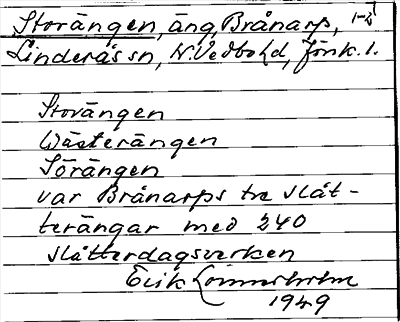 Storängen, äng, Brånarp, 1-2
Linderås sn, N. Vedbo hd, Jönk. l.
Storängen
Wästerängen
Sörängen
var Brånarps tre slåt-
terängar med 240
slåtterdagsverken
Erik Lönnerholm
1949